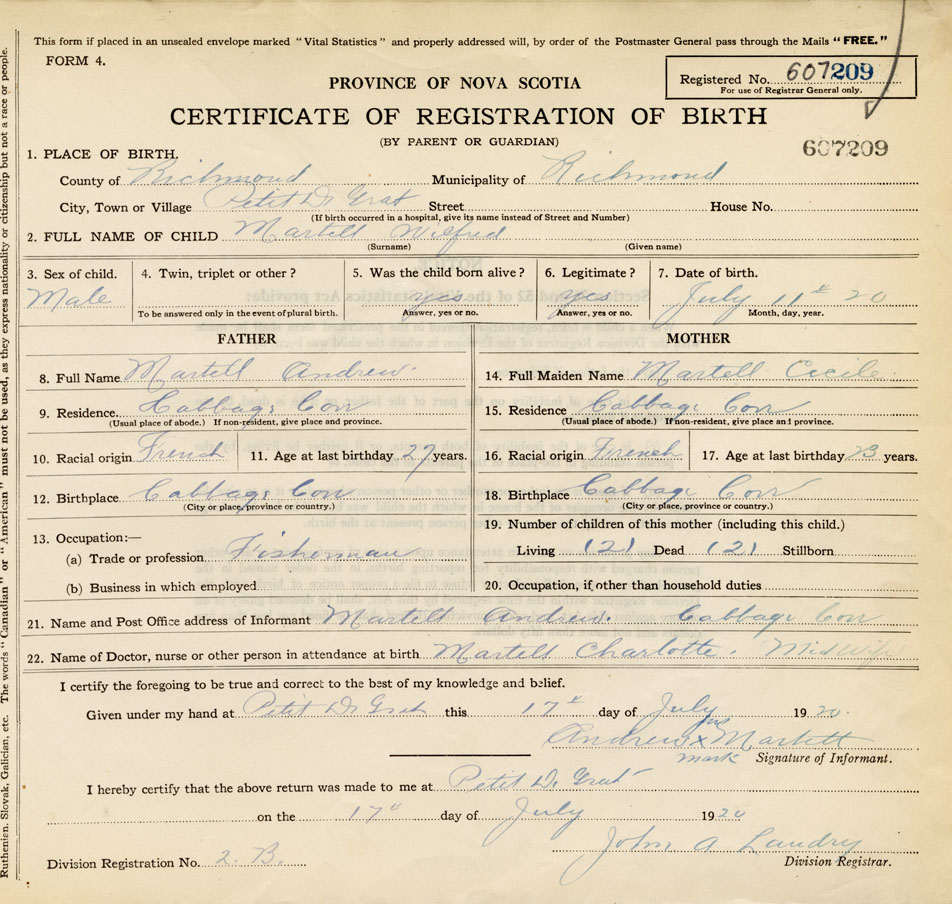 This form if placed in an unsealed envelope marked "Vital Statistics" and properly addressed will, by order of the Postmaster General pass through the Mails "FREE."
FORM 4.
Registered No. 607209
For use of Registrar General only.
PROVINCE OF NOVA SCOTIA
CERTIFICATE OF REGISTRATION OF BIRTH
(BY PARENT OR GUARDIAN)
607209
1. PLACE OF BIRTH.
County of Richmond Municipality of Richmond
City, Town or Village Petit De Grat Street House No.
(If birth occurred in a hospital, give its name instead of Street and Number)
2. FULL NAME OF CHILD Martell Wilfred
(Surname) (Given name)
3. Sex of child. 4. Twin, triplet or other? 5. Was the child born alive? 6. Legitimate? 7. Date of birth.
Male yes yes July 11th 20
To be answered only in the event of plural birth. Answer, yes or no. Answer, yes or no. Month, day, year.
FATHER MOTHER
8. Full Name Martell Andrew 14. Full Maiden Name Martell Cecile
9. Residence Cabbage Cove 15. Residence Cabbage Cove
(Usual place of abode.) If non-resident, give place and province. (Usual place of abode.) If non-resident, give place and province.
10. Racial origin French 11. Age at last birthday 27 years. 16. Racial origin French 17. Age at last birthday 23 years.
12. Birthplace Cabbage Cove 18. Birthplace Cabbage Cove
(City or place, province or country.) (City or place, province or country.)
13. Occupation:— 19. Number of children of this mother (including this child.)
(a) Trade or profession Fisherman Living (2) Dead (2) Stillborn
(b) Business in which employed 20. Occupation, if other than household duties
21. Name and Post Office address of Informant Martell Andrew. Cabbage Cove
22. Name of Doctor, nurse or other person in attendance at birth Martell Charlotte. Mid Wife
I certify the foregoing to be true and correct to the best of my knowledge and belief.
Given under my hand at Petit De Grat this 17th day of July 1920.
his
Andrew x Martell
mark Signature of Informant.
I hereby certify that the above return was made to me at Petit De Grat
on the 17th day of July 1920
John A Landry
Division Registration No. 2. B. Division Registrar.
Ruthenian, Slovak, Galician, etc. The words "Canadian" or "American" must not be used, as they express nationality or citizenship but not a race or people.